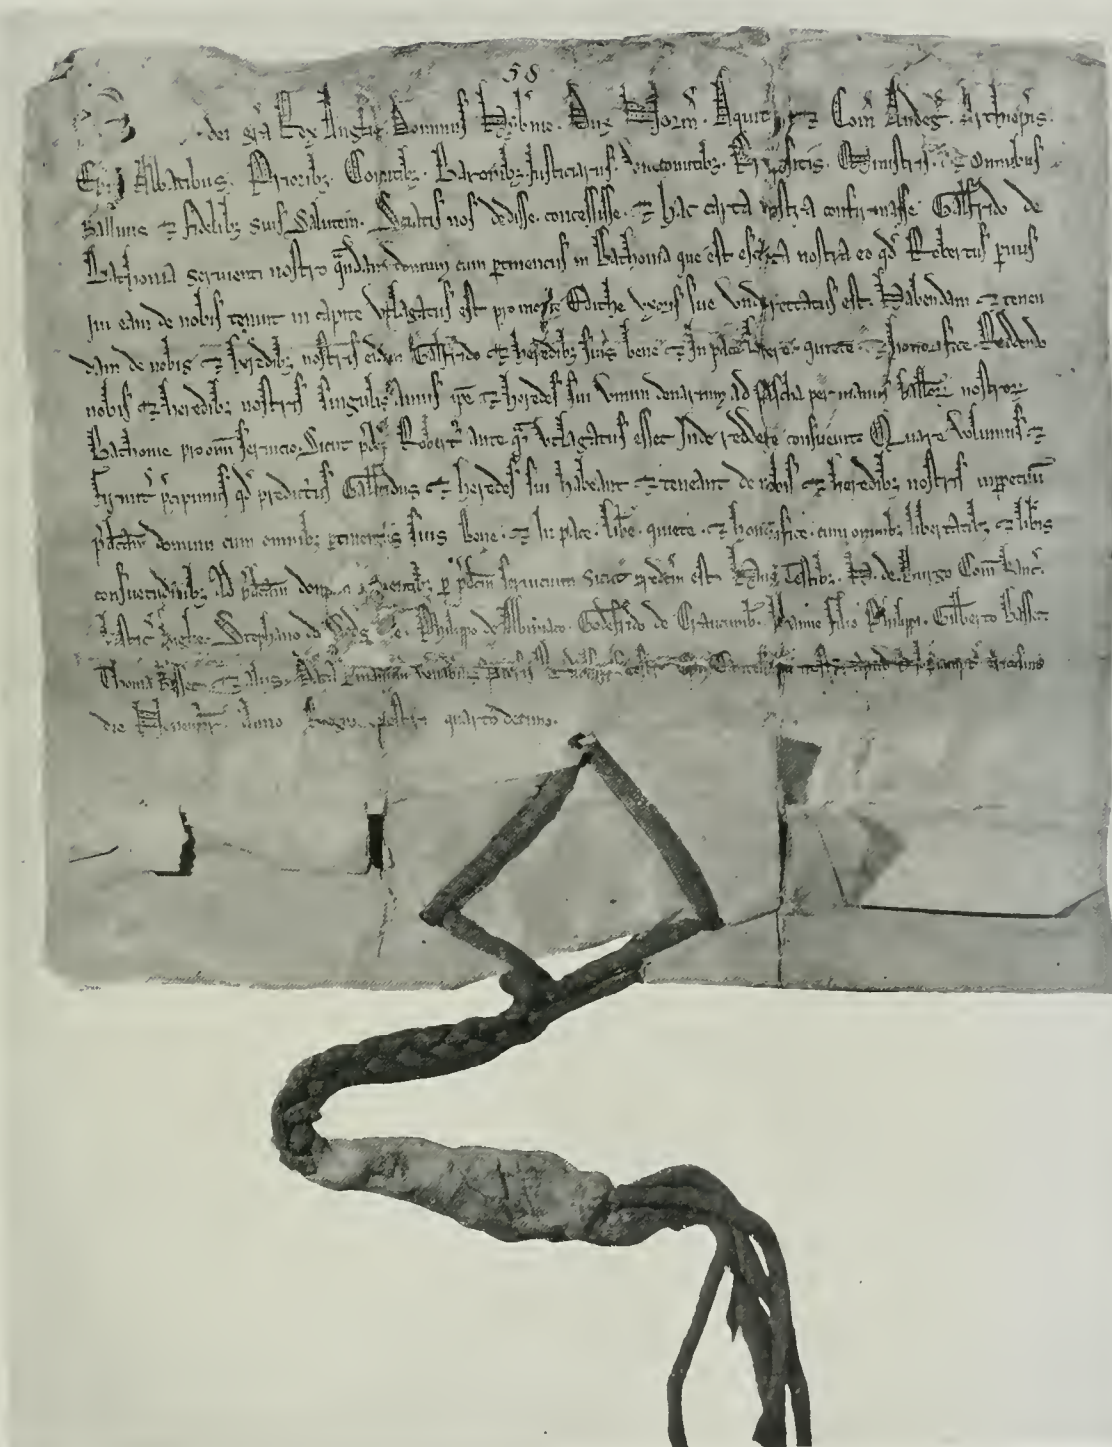 58
dei gr̄a Rex Angl̄ Dominus Hẏbnie Dux Norm̄ Aquit̄ ⁊ Com̄ Andeḡ Archiep̄is
Ep̄is Abbatibus Prioribȝ Comitibȝ Baronibȝ Justiciariis Vicecomitibȝ Prepositis Ministris ⁊ Omnibus
Ballivis ⁊ fidelibȝ suis Salutem Sciatis nos dedisse concessisse ⁊ hac carta nostra confirmasse Galfrido de
Bathonia servienti nostro quandam domum cum ptinenciis in Bathonia que est escaeta nostra eo qd Robertus pius
qui eam de nobis tenuit in capite Vtlagatus est pro morte Edithe vxoris sue vnde rettatus est Habendam ⁊ tenen
dam de nobis ⁊ heredibȝ nostris eidem Galfrido ⁊ heredibȝ suis bene ⁊ in pace libere quiete ⁊ honorifice Reddendo
nobis ⁊ heredibȝ nostris singulis Annis ipe ⁊ heredes sui Vnum denarium ad Pascha per manum ballior nostror
Bathonie pro omi servicio Sicut pdcs Robert ante q Vtlagatus esset Inde reddere consuevit Quare Volumus ⁊
firmit pcipimus qd predictus Galfridus ⁊ heredes sui habeant ⁊ teneant de nobis ⁊ heredibȝ nostris inppetuum
pdictam domum cum omnibȝ ptinentiis suis Bene ⁊ in pace libe quiete ⁊ honorifice cum omnibȝ libertatibȝ ⁊ libis
consuetudinibȝ Ad pdictam domum ptinentibȝ p pdictm servicium sicut predctm est Hiis Testibȝ H de Burgo Com Kanc
Justic Anglie Stephano de Philippo de Albiniaco Godefrido de Craucumb Johanne filio Philippi Gilberto Basset
Thoma Basset ⁊ Aliis Data manum venerabilis Patris Cancellarii nostri apud
die Anno Regni nostri quartodecimo